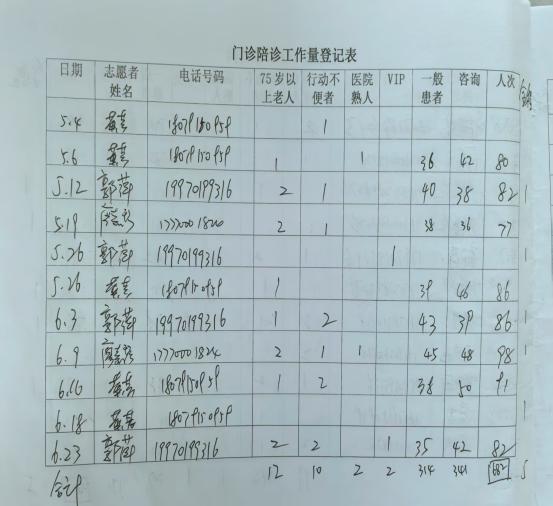 门诊陪诊工作量登记表
日期 志愿者姓名 电话号码 75岁以上老人 行动不便者 医院熟人 VIP 一般患者 咨询 人次
5.4 18079150959 1
5.6 18079150959 1 1 36 42 80
5.12 郭萍 19970199316 2 1 40 38 82 1
5.19 17770001824 2 1 38 36 77
5.26 郭萍 19970199316 1 1
5.26 18079150959 1 39 46 86
6.3 郭萍 19970199316 1 2 43 39 86 1
6.9 17770001824 2 1 1 45 48 98
18079150959 1 2 38 50 91
6.18 18079150959 1
6.23 郭萍 19970199316 2 2 1 35 42 82
合计 12 10 2 2 314 341 682 5